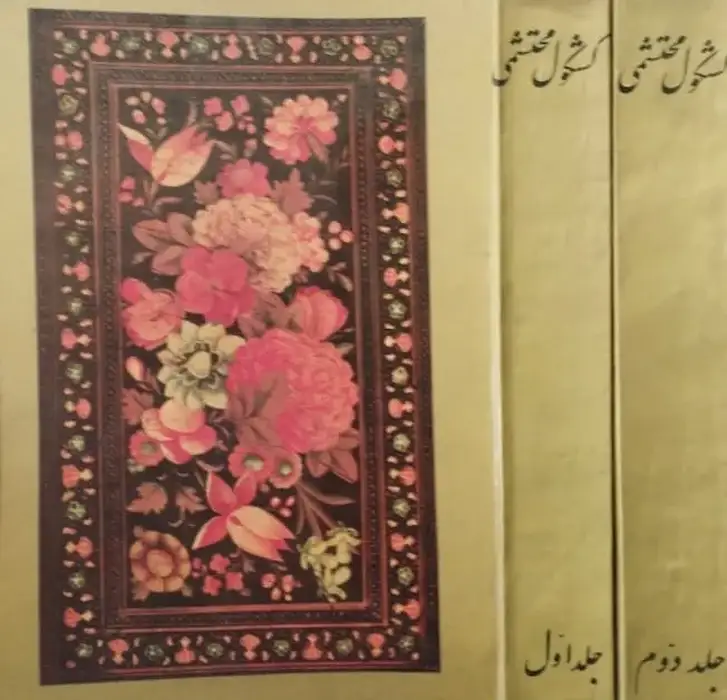 کشکول محتشمی
کشکول محتشمی
جلد اول
جلد دوم